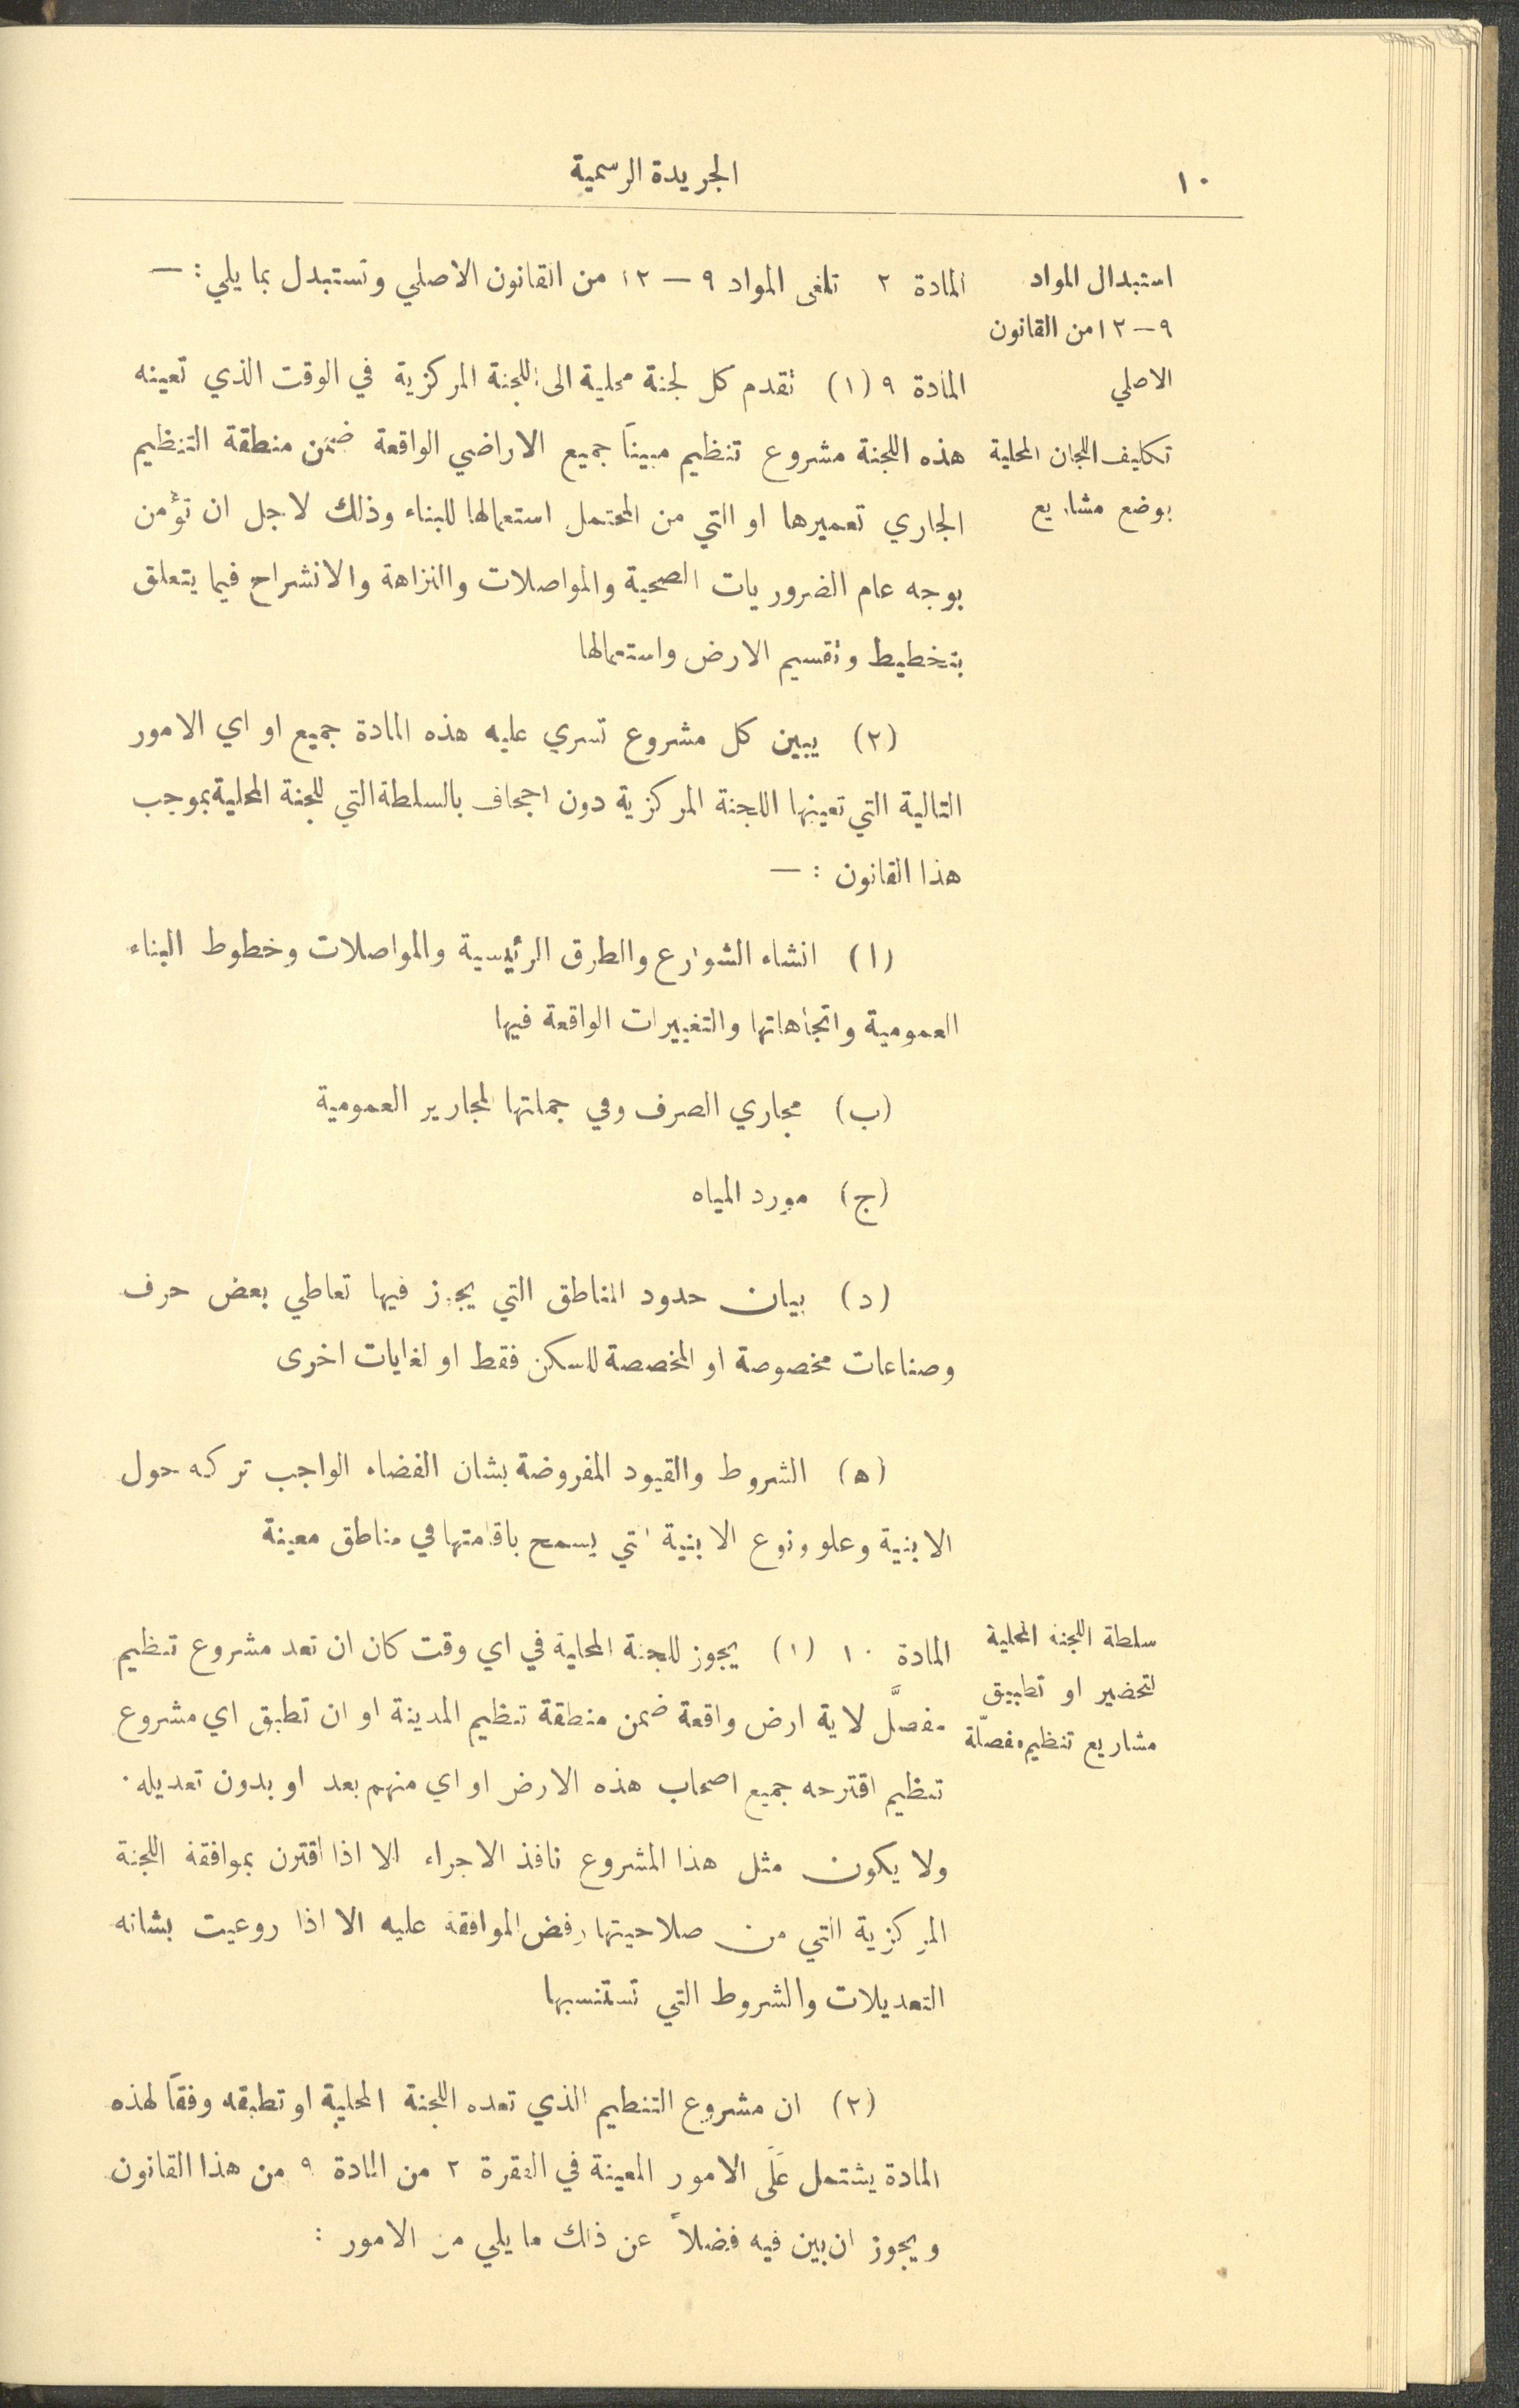 ١٠
الجريدة الرسمية
استبدال المواد
٩ – ١٢ من القانون
الاصلي
المادة ٢ تلغى المواد ٩ – ١٢ من القانون الاصلي وتستبدل بما يلي : —
تكليف اللجان المحلية
بوضع مشاريع
المادة ٩ (١) تقدم كل لجنة محلية الى اللجنة المركزية في الوقت الذي تعينه
هذه اللجنة مشروع تنظيم مبيناً جميع الاراضي الواقعة ضمن منطقة التنظيم
الجاري تعميرها او التي من المحتمل استعمالها للبناء وذلك لاجل ان تؤمن
بوجه عام الضروريات الصحية والمواصلات والنزاهة والانشراح فيما يتعلق
بتخطيط وتقسيم الارض واستعمالها
(٢) يبين كل مشروع تسري عليه هذه المادة جميع او اي الامور
التالية التي تعينها اللجنة المركزية دون اجحاف بالسلطة التي للجنة المحلية بموجب
هذا القانون : —
(ا) انشاء الشوارع والطرق الرئيسية والمواصلات وخطوط البناء
العمومية واتجاهاتها والتغييرات الواقعة فيها
(ب) مجاري الصرف وفي جملتها المجارير العمومية
(ج) مورد المياه
(د) بيان حدود المناطق التي يجوز فيها تعاطي بعض حرف
وصناعات مخصوصة او المخصصة للسكن فقط او لغايات اخرى
(ه) الشروط والقيود المفروضة بشان الفضاء الواجب تركه حول
الابنية وعلو ونوع الابنية التي يسمح باقامتها في مناطق معينة
سلطة اللجنة المحلية
لتحضير او تطبيق
مشاريع تنظيم مفصّلة
المادة ١٠ (١) يجوز للجنة المحلية في اي وقت كان ان تعد مشروع تنظيم
مفصَّل لاية ارض واقعة ضمن منطقة تنظيم المدينة او ان تطبق اي مشروع
تنظيم اقترحه جميع اصحاب هذه الارض او اي منهم بعد او بدون تعديله .
ولا يكون مثل هذا المشروع نافذ الاجراء الا اذا اقترن بموافقة اللجنة
المركزية التي من صلاحيتها رفض الموافقة عليه الا اذا روعيت بشانه
التعديلات والشروط التي تستنسبها
(٢) ان مشروع التنظيم الذي تعده اللجنة المحلية او تطبقه وفقاً لهذه
المادة يشتمل عَلَى الامور المعينة في الفقرة ٢ من المادة ٩ من هذا القانون
ويجوز ان بين فيه فضلاً عن ذلك ما يلي من الامور :